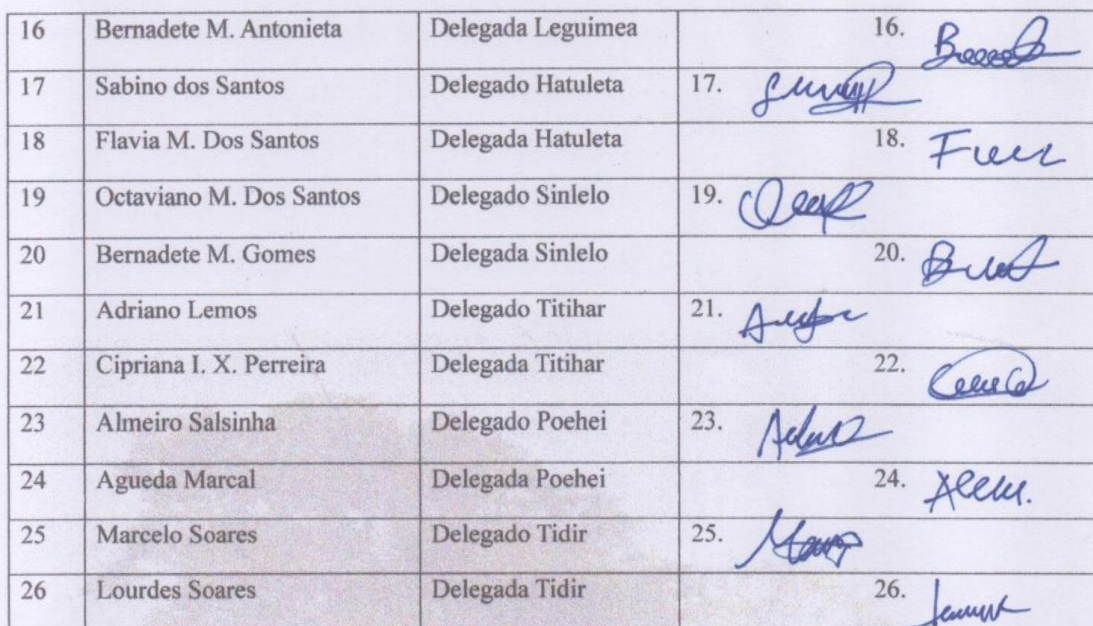 16 Bernadete M. Antonieta Delegada Leguimea 16.
17 Sabino dos Santos Delegado Hatuleta 17.
18 Flavia M. Dos Santos Delegada Hatuleta 18.
19 Octaviano M. Dos Santos Delegado Sinlelo 19.
20 Bernadete M. Gomes Delegada Sinlelo 20.
21 Adriano Lemos Delegado Titihar 21.
22 Cipriana I. X. Perreira Delegada Titihar 22.
23 Almeiro Salsinha Delegado Poehei 23.
24 Agueda Marcal Delegada Poehei 24.
25 Marcelo Soares Delegado Tidir 25.
26 Lourdes Soares Delegada Tidir 26.